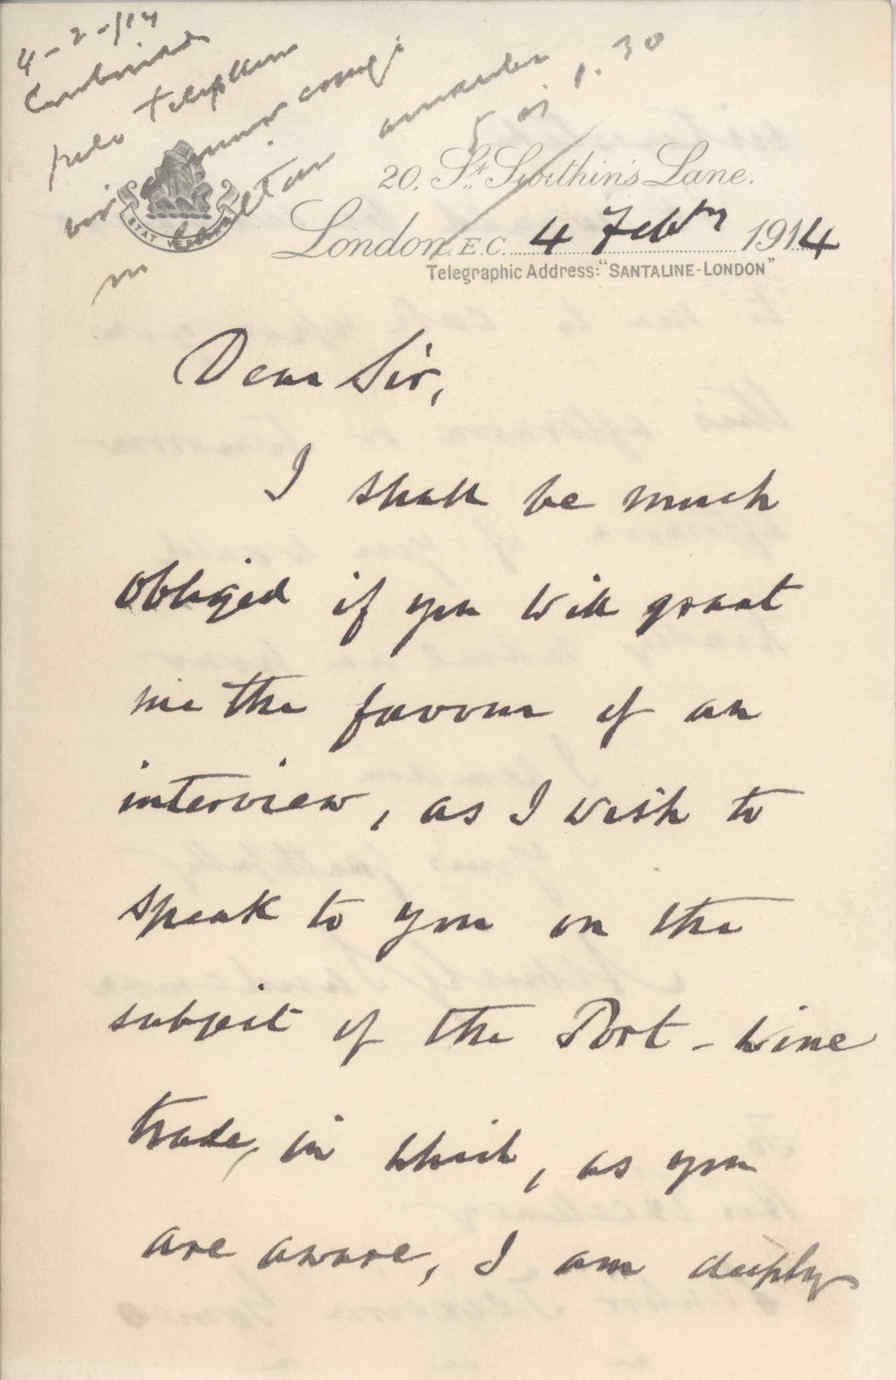 4-2-914
Combinado
pelo telephone
vir
no Carlton amanhã
5 às 1.30
STAT VERITAS
20, St Swithin's Lane.
London, E.C. 4 Febry 1914
Telegraphic Address: "SANTALINE-LONDON"
Dear Sir,
I shall be much
obliged if you will grant
me the favour of an
interview, as I wish to
speak to you on the
subject of the Port-Wine
trade, in which, as you
are aware, I am deeply